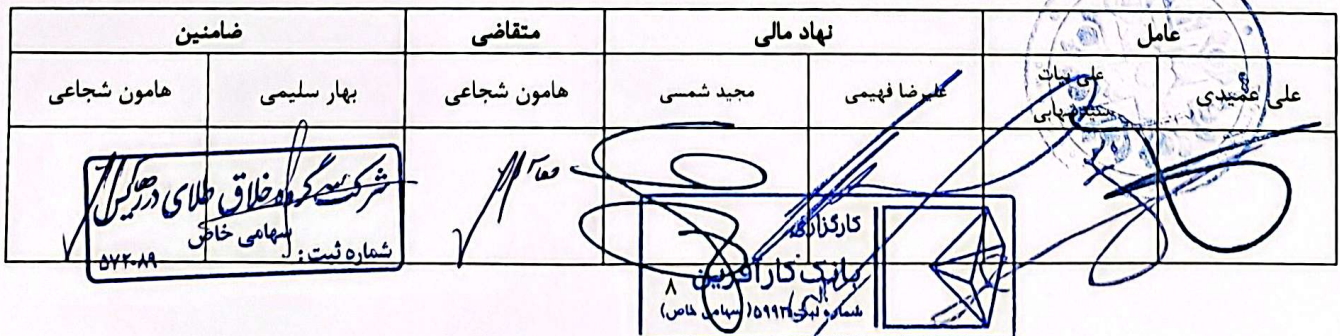 عامل نهاد مالی متقاضی ضامنین
علی عمیدی علی بیات علیرضا فهیمی مجید شمسی هامون شجاعی بهار سلیمی هامون شجاعی
شرکت گروه خلاق طلای
سهامی خاص
شماره ثبت: ۵۷۲۰۸۹
کارگزاری
بانک کارآفرین
(سهامی خاص)
۸